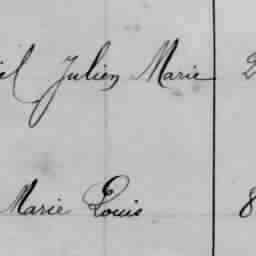 Julien Marie 2
Marie Louis 8